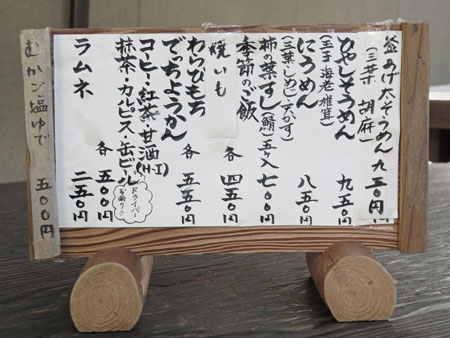 釜あげ太そうめん 九五〇円
(三葉 胡麻)
ひやしそうめん 九五〇円
(玉子 海老 椎茸)
にうめん 八五〇円
(三葉・しめじ・天かす)
柿の葉すし(鯖)五ヶ入 七〇〇円
季節のご飯
焼いも 各 四五〇円
わらびもち
でっちようかん 各 五五〇円
コーヒー・紅茶・甘酒(H・I)
抹茶・カルピス・缶ビール 各 五〇〇円
ドライバー
お断り!!
ラムネ 二五〇円
むかご塩ゆで 五〇〇円